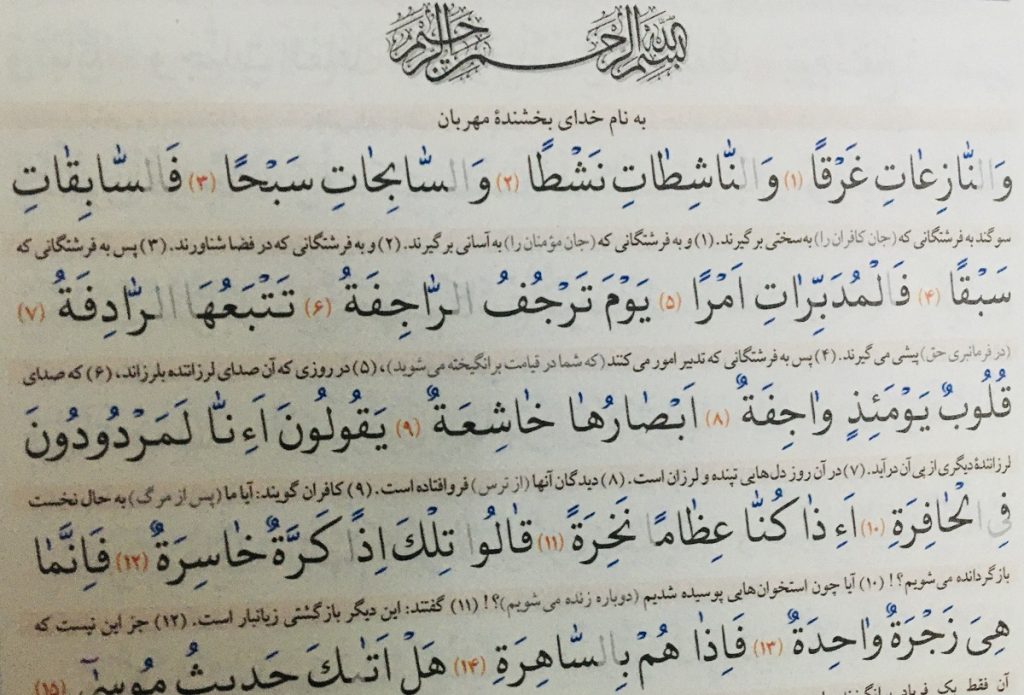 بسم الله الرحمن الرحیم
به نام خدای بخشندهٔ مهربان
وَالنَّازِعَاتِ غَرْقًا (۱) وَالنَّاشِطَاتِ نَشْطًا (۲) وَالسَّابِحَاتِ سَبْحًا (۳) فَالسَّابِقَاتِ
سوگند به فرشتگانی که (جان کافران را) به سختی برگیرند. (۱) و به فرشتگانی که (جان مؤمنان را) به آسانی برگیرند. (۲) و به فرشتگانی که در فضا شناورند. (۳) پس به فرشتگانی که
سَبْقًا (۴) فَالْمُدَبِّرَاتِ اَمْرًا (۵) یَوْمَ تَرْجُفُ الرَّاجِفَةُ (۶) تَتْبَعُهَا الرَّادِفَةُ (۷)
(در فرمانبری حق) پیشی می‌گیرند. (۴) پس به فرشتگانی که تدبیر امور می‌کنند (که شما در قیامت برانگیخته می‌شوید)، (۵) در روزی که آن صدای لرزاننده بلرزاند، (۶) که صدای
قُلُوبٌ یَوْمَئِذٍ وَاجِفَةٌ (۸) اَبْصَارُهَا خَاشِعَةٌ (۹) یَقُولُونَ اَءِنَّا لَمَرْدُودُونَ
لرزانندهٔ دیگری از پی آن درآید. (۷) در آن روز دل‌هایی تپنده و لرزان است. (۸) دیدگان آنها (از ترس) فروافتاده است. (۹) کافران گویند: آیا ما (پس از مرگ) به حال نخست
فِی الْحَافِرَةِ (۱۰) اَءِذَا کُنَّا عِظَامًا نَخِرَةً (۱۱) قَالُوا تِلْكَ اِذًا کَرَّةٌ خَاسِرَةٌ (۱۲) فَاِنَّمَا
بازگردانده می‌شویم؟! (۱۰) آیا چون استخوان‌هایی پوسیده شدیم (دوباره زنده می‌شویم)؟! (۱۱) گفتند: این دیگر بازگشتی زیانبار است. (۱۲) جز این نیست که
هِیَ زَجْرَةٌ وَاحِدَةٌ (۱۳) فَاِذَا هُمْ بِالسَّاهِرَةِ (۱۴) هَلْ اَتٰىكَ حَدِیثُ مُوسٰىٓ (۱۵)
آن فقط یک فریاد